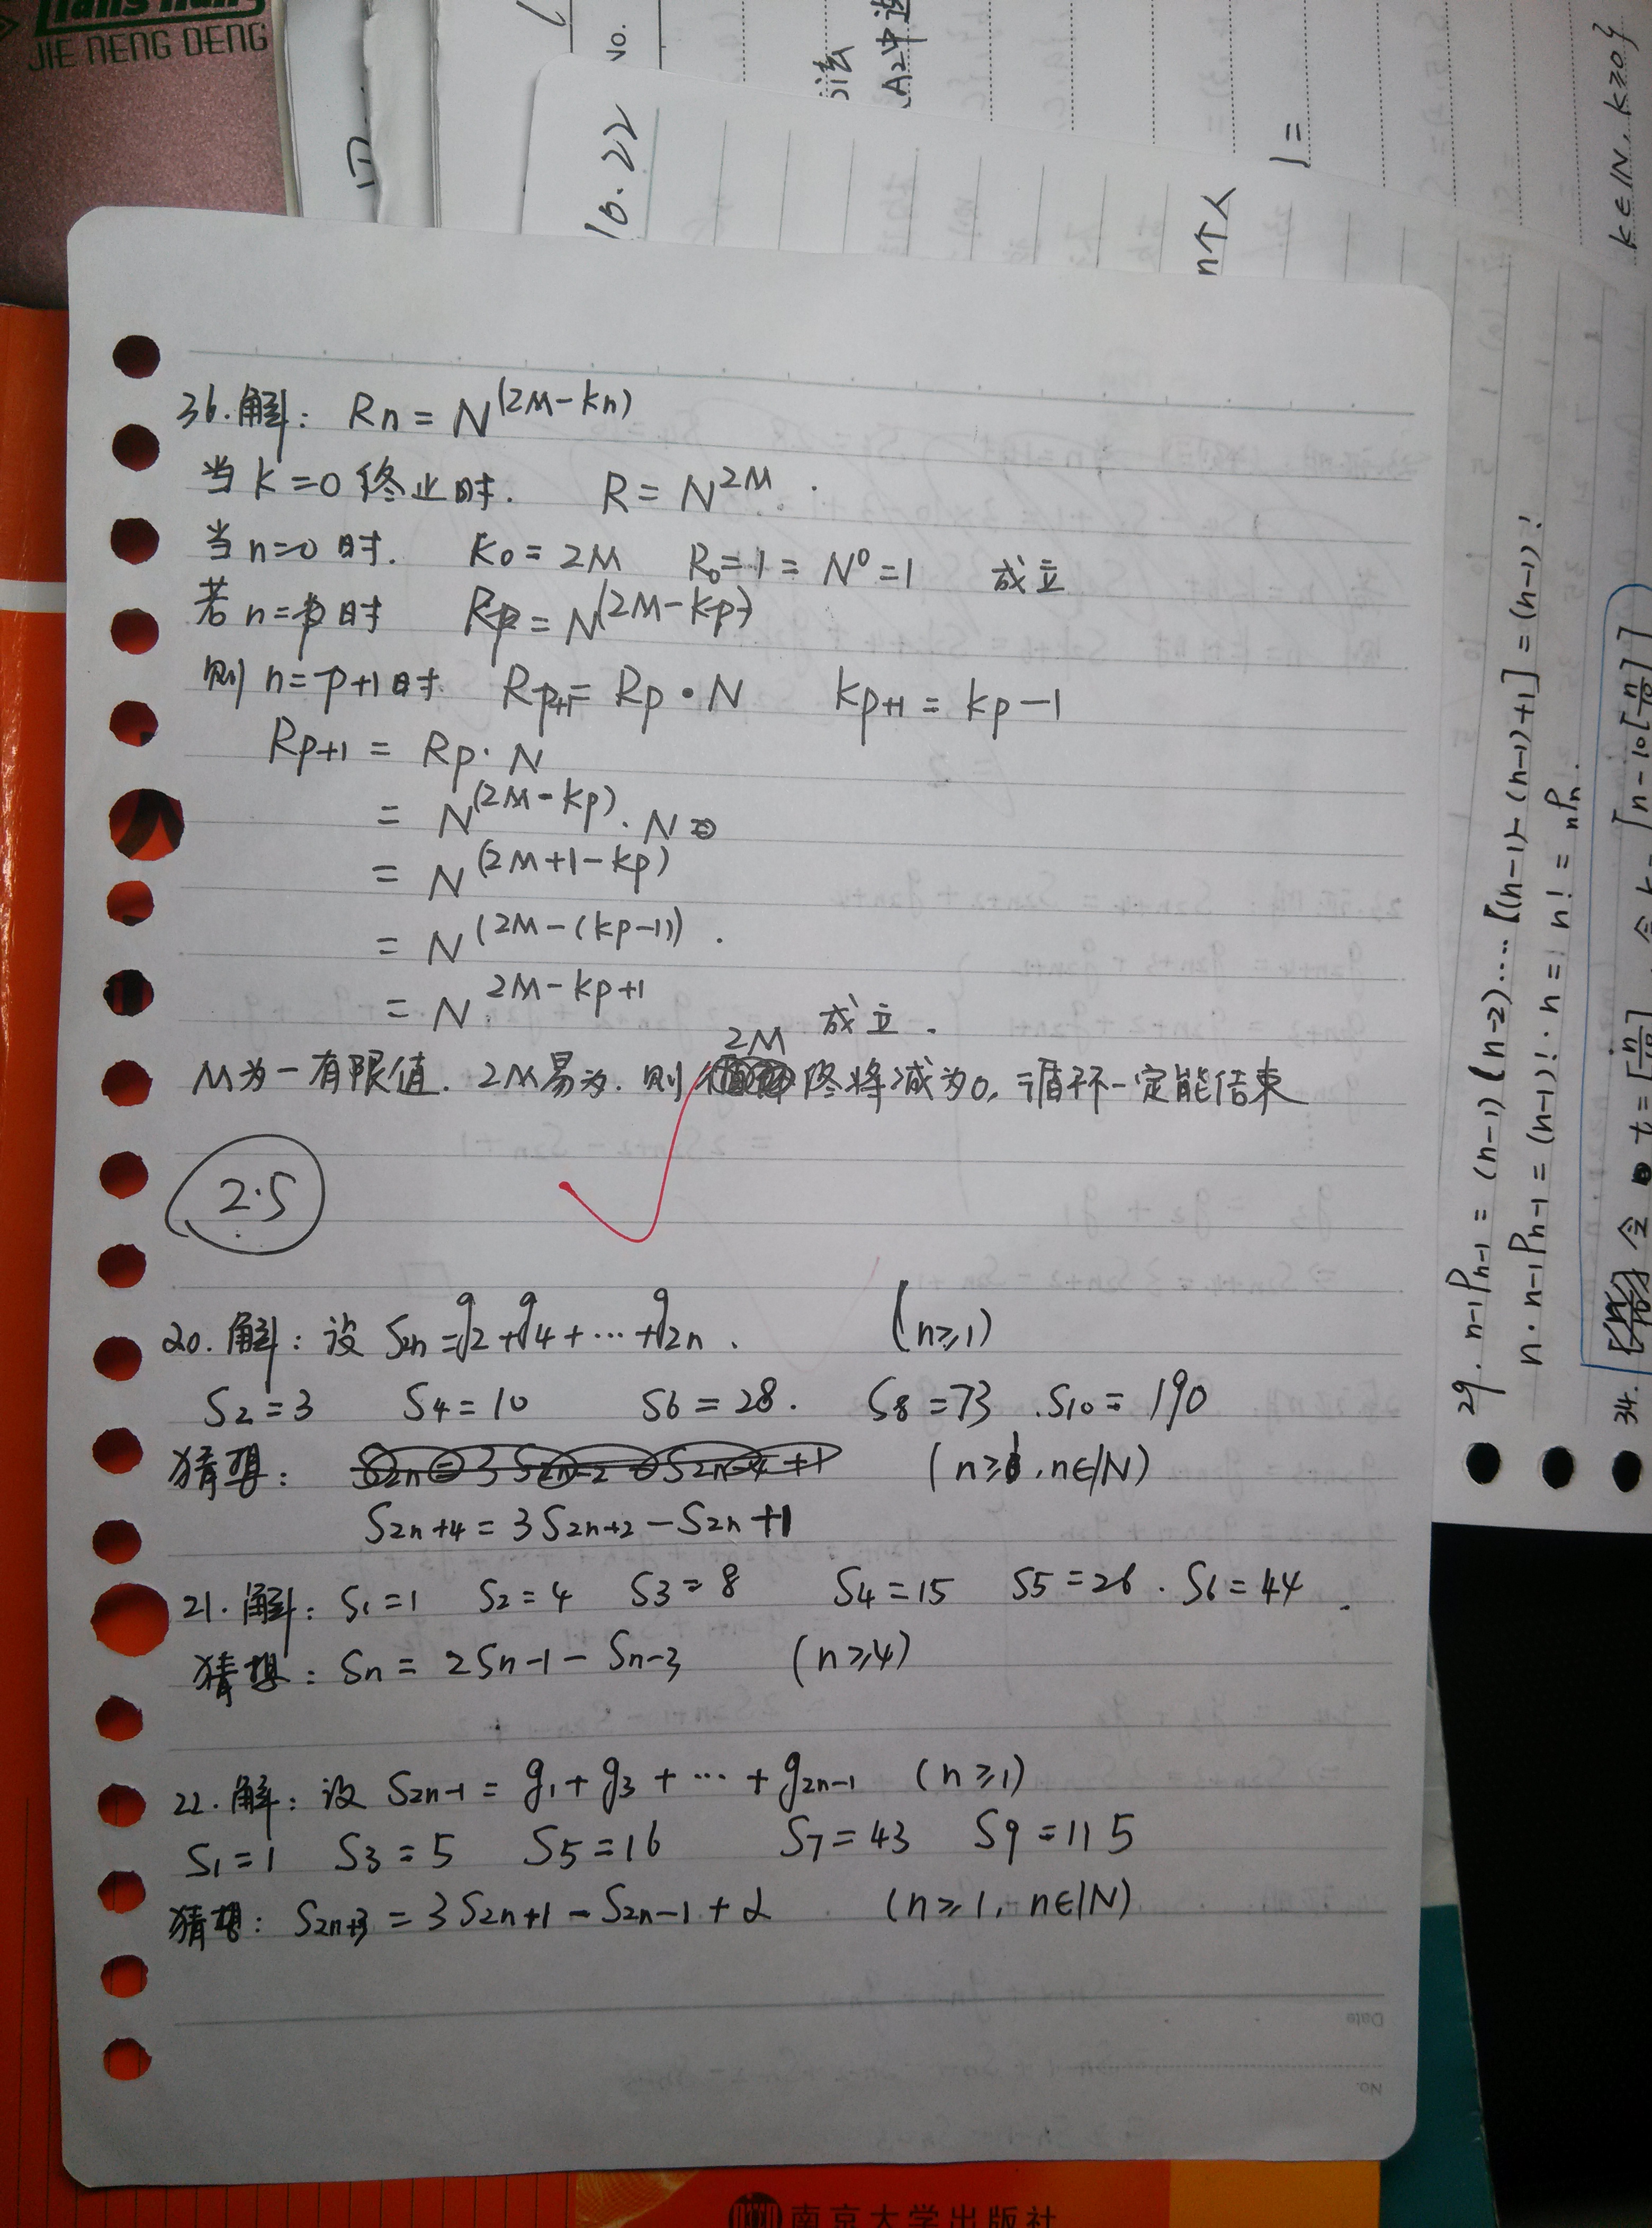 JIE NENG DENG
No.
10.22
n个人
k∈IN, k≥0}
36.解: Rn = N^(2M-kn)
当k=0终止时. R = N^2M.
当n=0时. K0 = 2M R0=1 = N^0 =1 成立
若n=p时 Rp = N^(2M-kp)
则n=p+1时 Rp+1 = Rp·N kp+1 = kp-1
Rp+1 = Rp·N
= N^(2M-kp)·N
= N^(2M+1-kp)
= N^(2M-(kp-1)).
= N^2M-kp+1 成立.
M为一有限值. 2M易为. 则2M终将减为0, 循环一定能结束
2.5
20.解: 设S2n = g2+g4+···+g2n. (n≥1)
S2=3 S4=10 S6=28. S8=73 .S10=190
猜想: S2n=3S2n-2-S2n-4+1 (n≥1, n∈IN)
S2n+4 = 3S2n+2 - S2n +1
21.解: S1=1 S2=4 S3=8 S4=15 S5=26. S6=44.
猜想: Sn = 2Sn-1 - Sn-3 (n≥4)
22.解: 设S2n-1 = g1+g3+···+g2n-1 (n≥1)
S1=1 S3=5 S5=16 S7=43 S9=115
猜想: S2n+3 = 3S2n+1 - S2n-1 + 2 (n≥1, n∈IN)
Date
No.
29. n-1Pn-1 = (n-1)(n-2)····[(n-1)-(n-1)+1] = (n-1)!
n·n-1Pn-1 = (n-1)!·n = n! = nPn.
34.
南京大学出版社